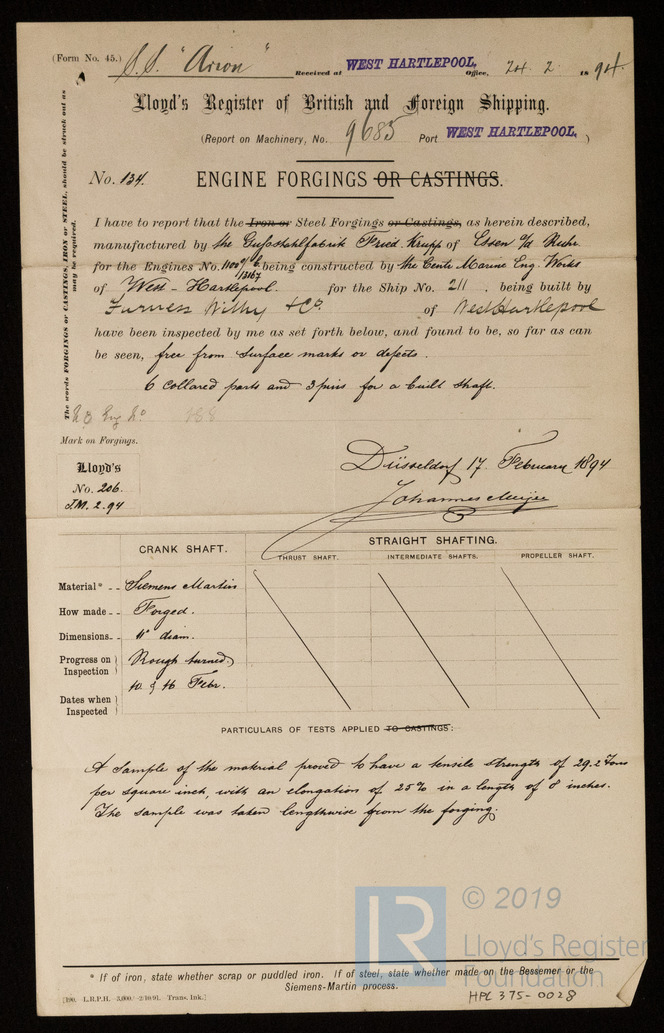 (Form No. 45.) S.S. "Arion" Received at WEST HARTLEPOOL, Office, 24. 2. 1894.
Lloyd's Register of British and Foreign Shipping.
(Report on Machinery, No. 9685 Port WEST HARTLEPOOL, )
No. 134. ENGINE FORGINGS OR CASTINGS.
I have to report that the Iron or Steel Forgings or Castings, as herein described,
manufactured by the Gußstahlfabrik Fried. Krupp of Essen a/d Ruhr
for the Engines No. being constructed by the Centr Marine Eng. Works
of West-Hartlepool. for the Ship No. 211, being built by
Furness Withy & Co. of West Hartlepool
have been inspected by me as set forth below, and found to be, so far as can
be seen, free from surface marks or defects.
6 collared parts and 3 pins for a built shaft.
The words FORGINGS or CASTINGS, IRON or STEEL, should be struck out as
may be required.
188
Mark on Forgings.
Lloyd's
No. 206.
J.M. 2.94
Düsseldorf 17. February 1894
Johannes Meijer
CRANK SHAFT. STRAIGHT SHAFTING.
THRUST SHAFT. INTERMEDIATE SHAFTS. PROPELLER SHAFT.
Material* - - Siemens Martin
How made - Forged.
Dimensions - - 11" diam.
Progress on Inspection Rough turned.
Dates when Inspected & 16 Febr.
PARTICULARS OF TESTS APPLIED TO CASTINGS:
A sample of the material proved to have a tensile strength of 29.2 Tons
per square inch, with an elongation of 25% in a length of 8 inches.
The sample was taken lengthwise from the forging.
© 2019
LR
Lloyd's Register
Foundation
* If of iron, state whether scrap or puddled iron. If of steel, state whether made on the Bessemer or the
Siemens-Martin process.
[190. L.R.P.H. 3,000.-2/10/91. Trans. Ink.]
HPL 375-0028